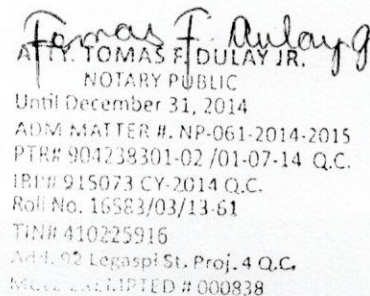 Tomas F. Dulay Jr
ATTY. TOMAS F. DULAY JR.
NOTARY PUBLIC
Until December 31, 2014
ADM MATTER #. NP-061-2014-2015
PTR# 904238301-02 /01-07-14 Q.C.
IBP# 915073 CY-2014 Q.C.
Roll No. 16583/03/13-61
TIN# 410225916
Add. 92 Legaspi St. Proj. 4 Q.C.
MCLE EXEMPTED # 000838